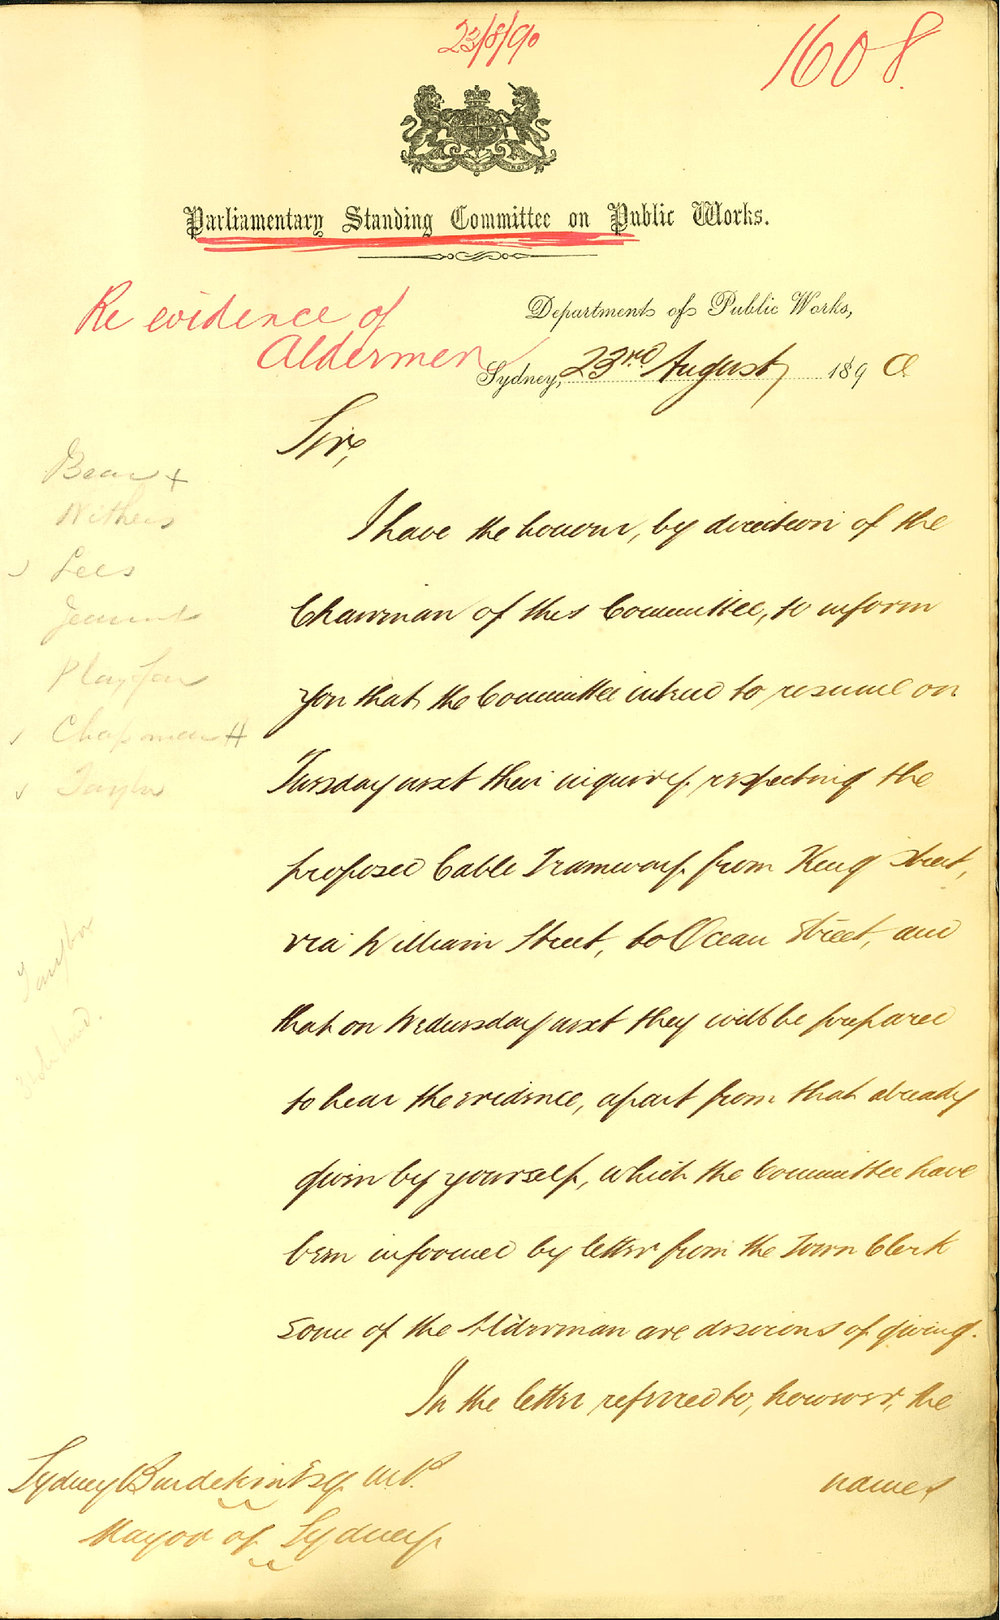 23/8/90
1608.
Parliamentary Standing Committee on Public Works.
Re evidence of
Aldermen
Department of Public Works,
Sydney, 23rd August 1890
Sir,
I have the honour, by direction of the
Chairman of this Committee, to inform
you that the Committee intend to resume on
Tuesday next their inquiry respecting the
proposed Cable Tramway from King Street,
via William Street, to Ocean Street, and
that on Wednesday next they will be prepared
to hear the evidence, apart from that already
given by yourself, which the Committee have
been informed by letter from the Town Clerk
some of the Aldermen are desirous of giving.
In the letter referred to, however, the
names
Sydney Burdekin Esq. M.P.
Mayor of Sydney
Bean +
Withers
Lees
Playfair
Chapman
Taylor
Taylor